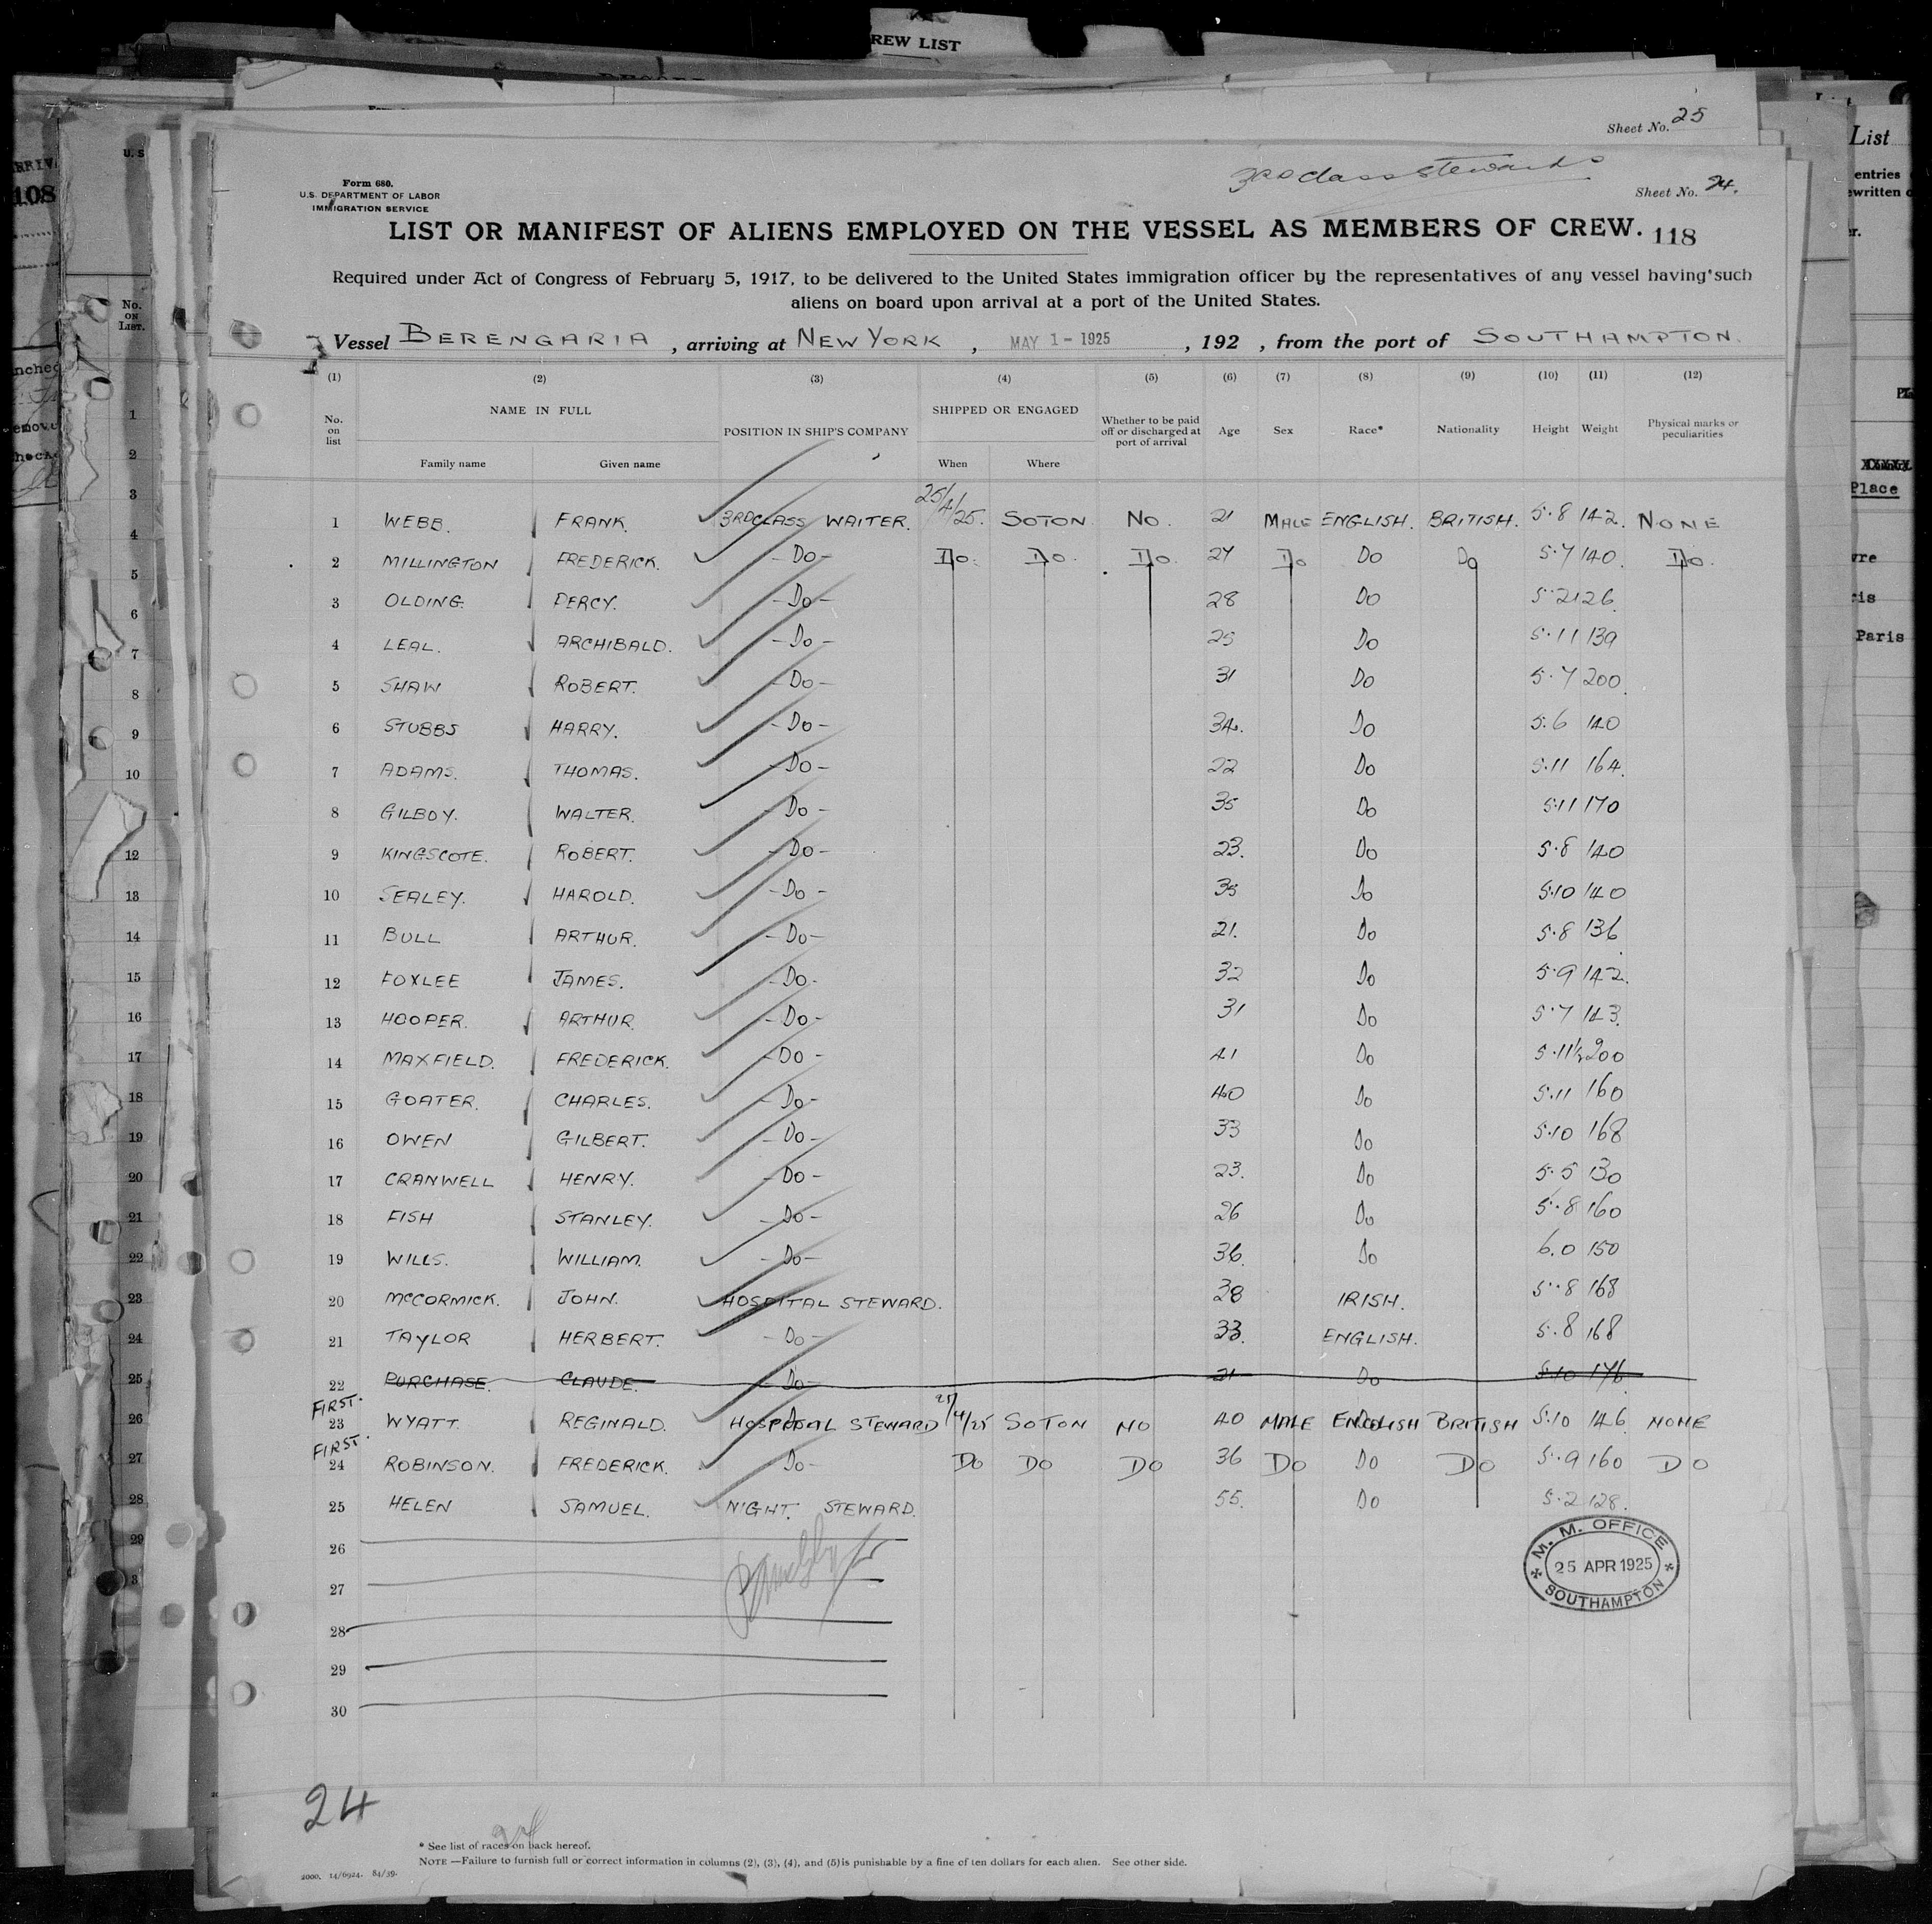 REW LIST
Sheet No. 25
3RD Class Stewards
Sheet No. 24.
Form 680.
U.S. DEPARTMENT OF LABOR
IMMIGRATION SERVICE
LIST OR MANIFEST OF ALIENS EMPLOYED ON THE VESSEL AS MEMBERS OF CREW. 118
Required under Act of Congress of February 5, 1917, to be delivered to the United States immigration officer by the representatives of any vessel having such
aliens on board upon arrival at a port of the United States.
Vessel BERENGARIA, arriving at NEW YORK, MAY 1 - 1925, 192 , from the port of SOUTHAMPTON.
(1) (2) (3) (4) (5) (6) (7) (8) (9) (10) (11) (12)
No. on list NAME IN FULL POSITION IN SHIP'S COMPANY SHIPPED OR ENGAGED Whether to be paid off or discharged at port of arrival Age Sex Race* Nationality Height Weight Physical marks or peculiarities
Family name Given name When Where
1 WEBB. FRANK. 3RD CLASS WAITER. 25/4/25. SOTON NO. 21 MALE ENGLISH. BRITISH. 5.8 142. NONE
2 MILLINGTON FREDERICK. -Do- Do. Do. Do. 27 Do Do Do 5.7 140. Do.
3 OLDING. PERCY. -Do- 28 Do 5.2 126.
4 LEAL. ARCHIBALD. -Do- 25 Do 5.11 139
5 SHAW ROBERT. -Do- 31 Do 5.7 200.
6 STUBBS HARRY. -Do- 34. Do 5.6 140
7 ADAMS. THOMAS. -Do- 22 Do 5.11 164.
8 GILBOY. WALTER. -Do- 35 Do 5.11 170
9 KINGSCOTE. ROBERT. -Do- 23. Do 5.8 140
10 SEALEY. HAROLD. -Do- 35 Do 5.10 140
11 BULL ARTHUR. -Do- 21. Do 5.8 136
12 FOXLEE JAMES. -Do- 32 Do 5.9 142.
13 HOOPER. ARTHUR. -Do- 31 Do 5.7 143.
14 MAXFIELD. FREDERICK. -Do- 41 Do 5.11½ 200
15 GOATER. CHARLES. -Do- 40 Do 5.11 160
16 OWEN GILBERT. -Do- 33 Do 5.10 168
17 CRANWELL HENRY. -Do- 23. Do 5.5 130
18 FISH STANLEY. -Do- 26 Do 5.8 160
19 WILLS. WILLIAM. -Do- 36. Do 6.0 150
20 McCORMICK. JOHN. HOSPITAL STEWARD. 28 IRISH. 5.8 168
21 TAYLOR HERBERT. -Do- 33. ENGLISH. 5.8 168
22 PURCHASE. CLAUDE. -Do- 21 Do 5.10 176
FIRST.
23 WYATT. REGINALD. HOSPITAL STEWARD 25/4/25 SOTON NO 40 MALE ENGLISH BRITISH 5.10 146 NONE
FIRST.
24 ROBINSON. FREDERICK. -Do- Do Do Do 36 Do Do Do 5.9 160 Do
25 HELEN SAMUEL. NIGHT. STEWARD. 55. Do 5.2 128.
26
27
28
29
30
M. M. OFFICE
25 APR 1925
SOUTHAMPTON
24
* See list of races on back hereof.
NOTE —Failure to furnish full or correct information in columns (2), (3), (4), and (5) is punishable by a fine of ten dollars for each alien. See other side.
2000. 14/6924. 84/39.
108
U. S
No.
ON
LIST.
1
2
3
4
5
6
7
8
9
10
12
13
14
15
16
17
18
19
20
21
22
23
24
25
26
27
28
29
List
entries
ewritten
Place
Paris